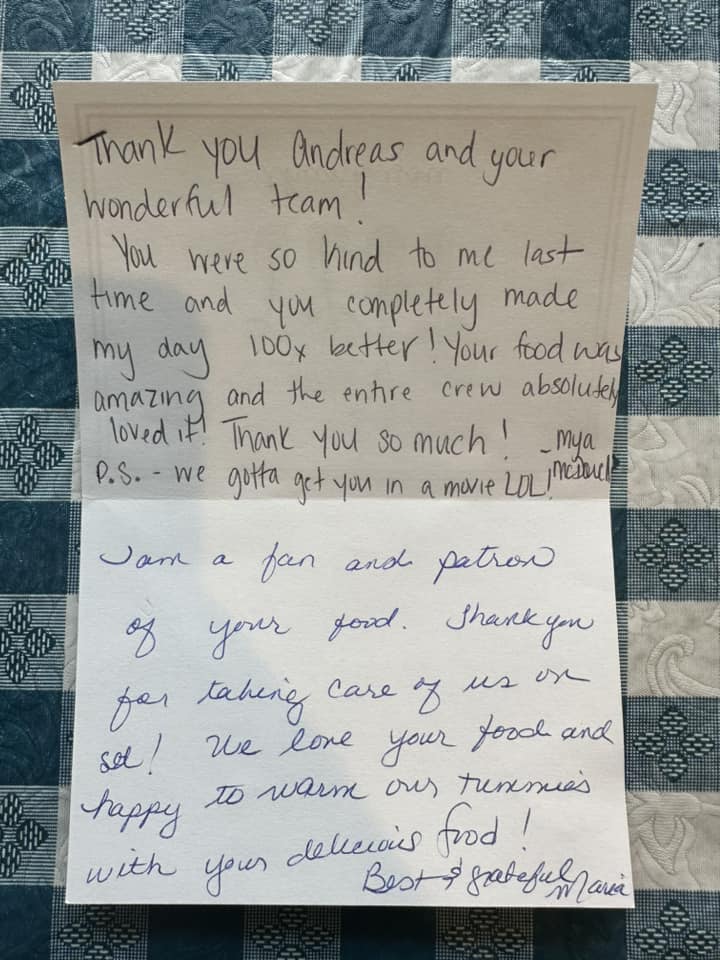 Thank you Andreas and your
wonderful team!
You were so kind to me last
time and you completely made
my day 100x better! Your food was
amazing and the entire crew absolutely
loved it! Thank you so much! - Mya
P.S. - we gotta get you in a movie LOL!
I am a fan and patron
of your food. Thank you
for taking care of us on
set! We love your food and
happy to warm our tummies
with your delicious food!
Best & grateful, Maria